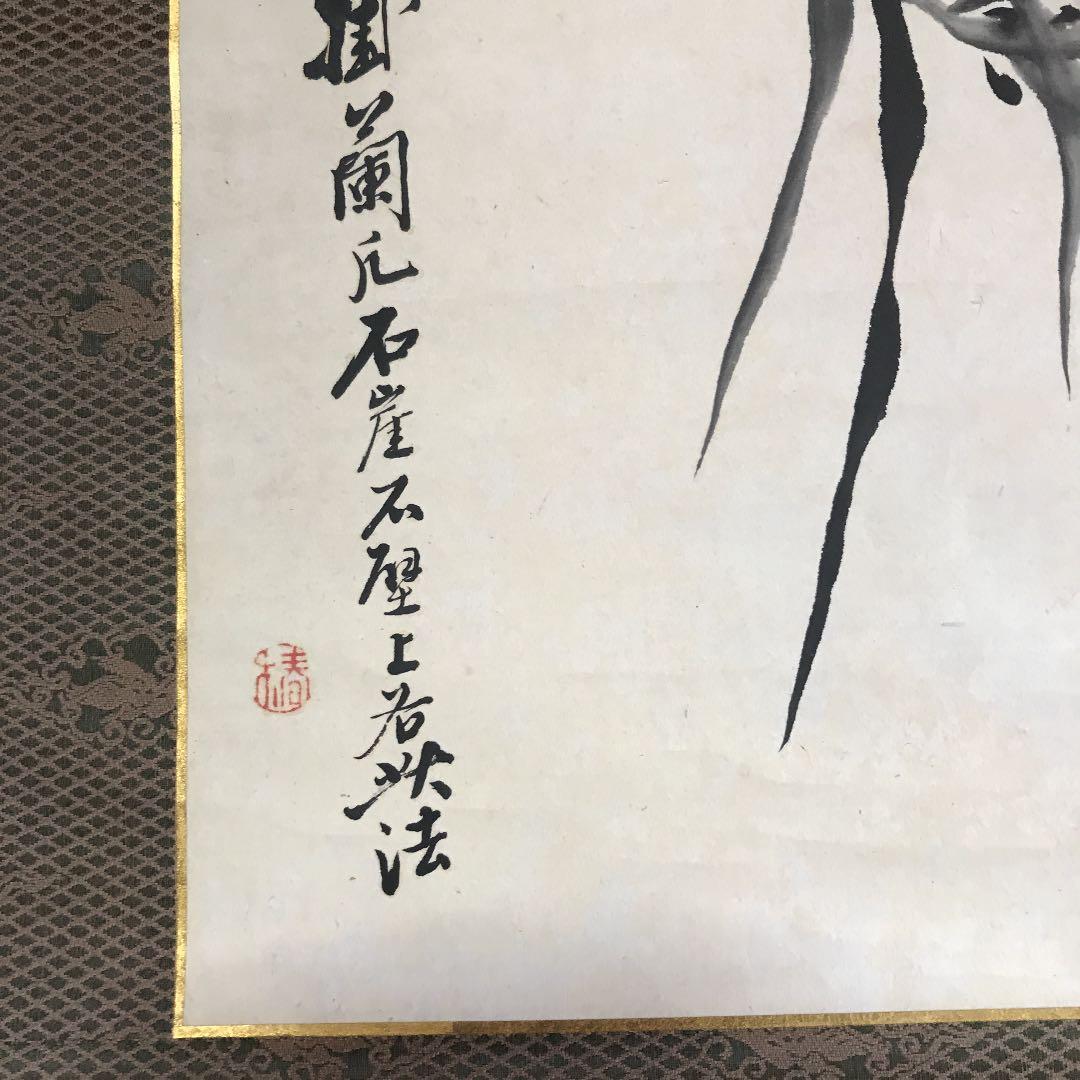 蘭凡石崖石壁上若此法